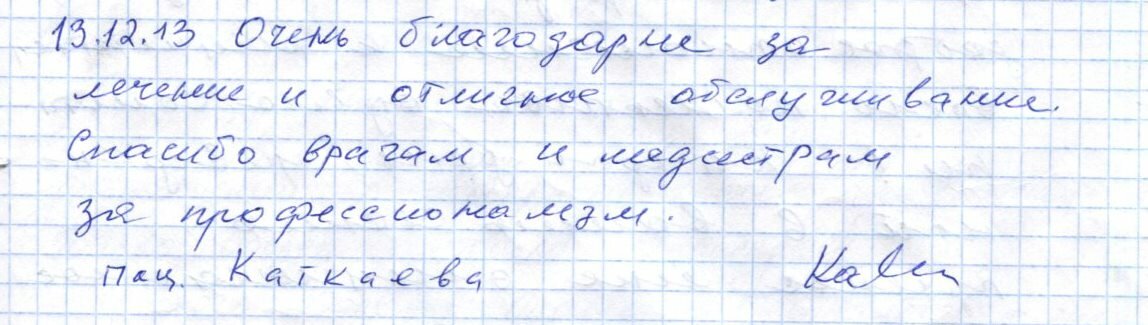 13.12.13 Очень благодарна за
лечение и отличное обслуживание.
Спасибо врачам и медсестрам
за профессионализм.
пац. Каткаева